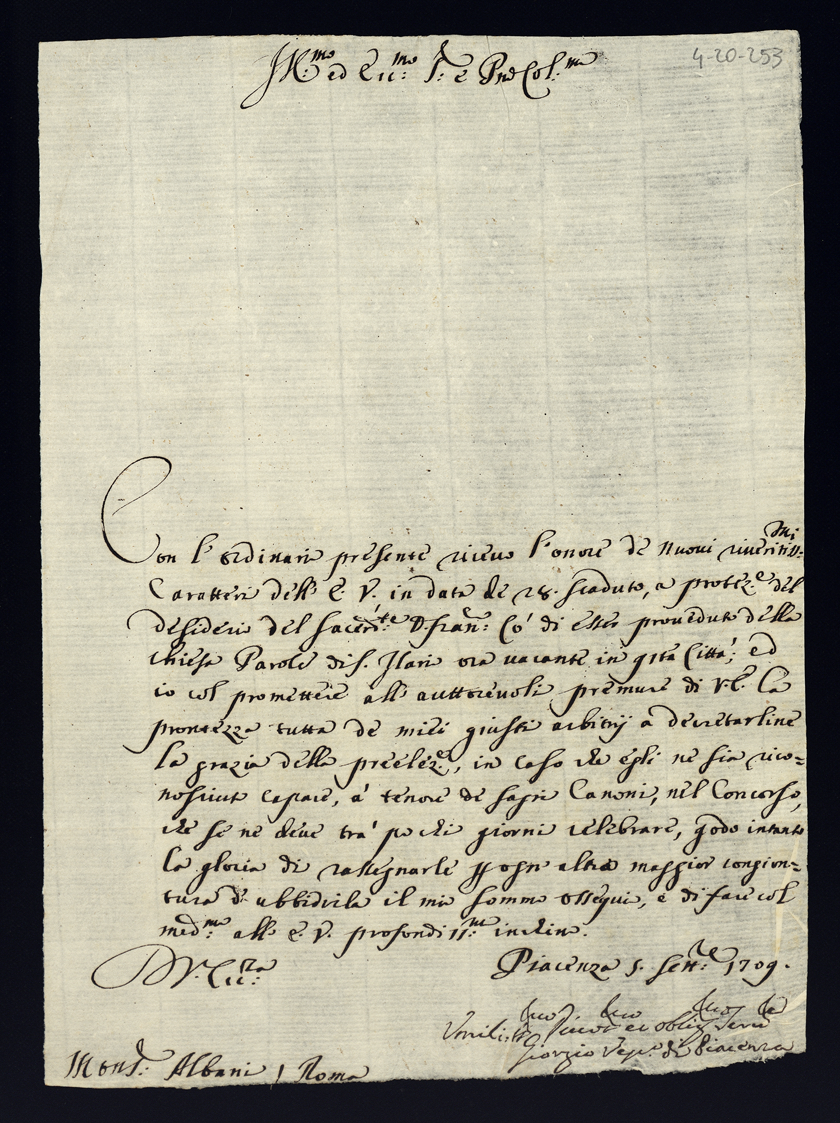 4-20-253
Ill:mo ed Ecc:mo S:r e Pne Col:mo
Con l'ordinario presente ricevo l'onore de nuovi riveritiss:mi
Caratteri dell'E. V. in data de 28. scaduto, a protez:e del
desiderio del Sacerd:te D Fran:co Cò di esser proveduto della
chiesa Parole di S. Ilario ora vacante in q͞sta Città; ed
io col promettere all'auttorevoli premure di V. E. la
prontezza tutta de miei giusti arbitrij à decretarline
la grazia della preelez:e, in caso che egli ne sia rico=
nosciuto capace, à tenore de sagri Canoni, nel Concorso,
che se ne deve trà pochi giorni celebrare, godo intanto
la gloria di rassegnarle p ogn'altra maggior congion=
tura d'ubbidirla il mio sommo ossequio, e di fare col
med:mo all'E. V. profondiss:mo inchino.
D V. Ecc:za Piacenza 5. Sett:re 1709.
Umiliss:mo Divot:mo et obblig:mo Serv:re
Giorgio Vesc:o di Piacenza
Mons:r Albani / Roma